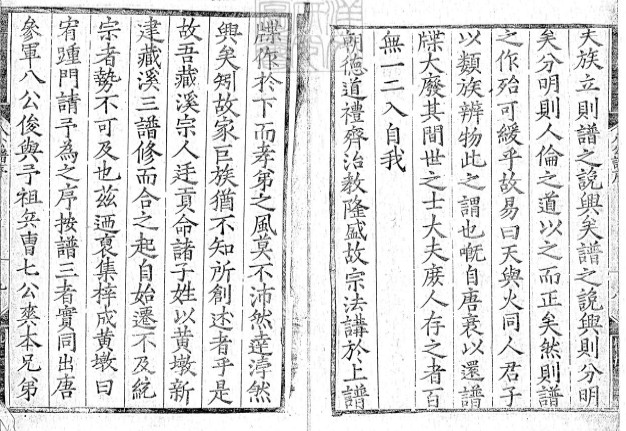 夫族立則譜之説興矣譜之説興則分明
矣分明則人倫之道以之而正矣然則譜
之作殆可緩乎故易曰天與火同人君子
以類族辨物此之謂也嘅自唐衰以還譜
牒大廢其間世之士大夫庶人存之者百
無一二入自我
朝德道禮齊治教隆盛故宗法講於上譜
牒作於下而孝弟之風莫不沛然達淳然
興矣矧故家巨族猶不知所創述者乎是
故吾藏溪宗人廷貢命諸子姓以黄墩新
建藏溪三譜修而合之起自始遷不及統
宗者勢不可及也茲廼裒集梓成黄墩曰
宥踵門請予為之序按譜三者實同出唐
參軍八公俊與予祖兵曹七公奭本兄弟